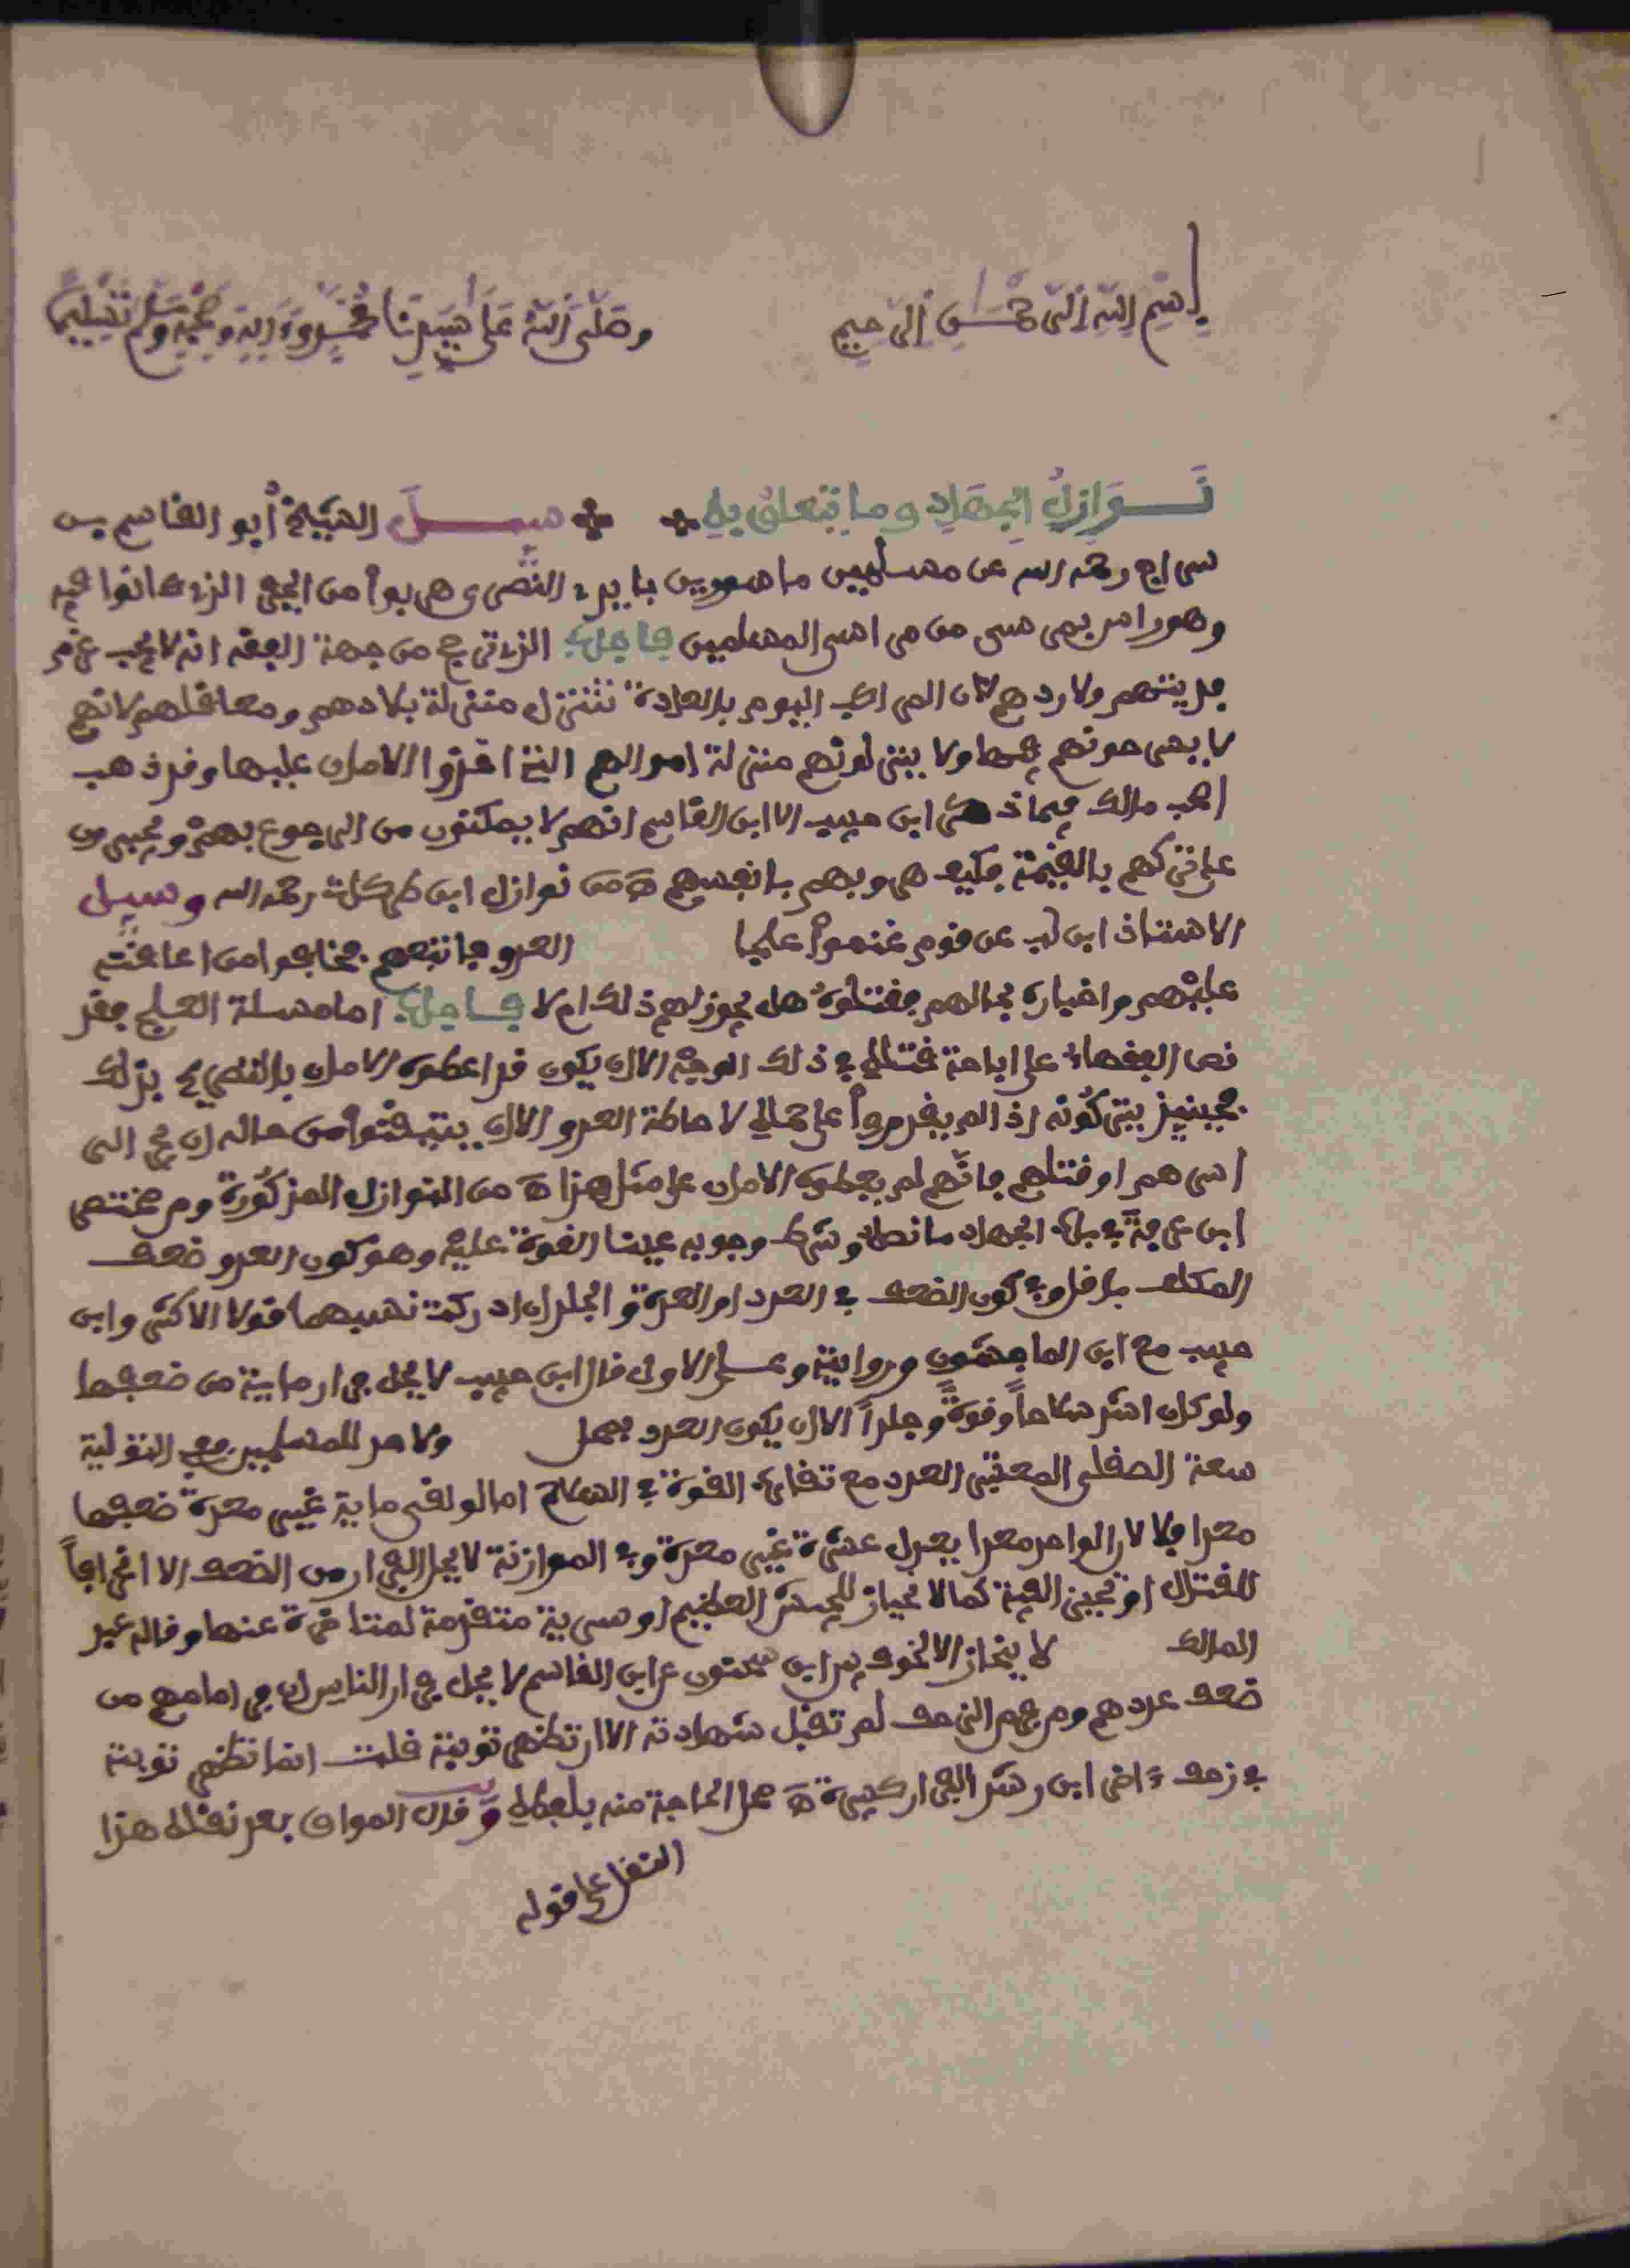 بسم الله الرحمن الرحيم وصلى الله على سيدنا محمد وءاله وصحبه وسلم تسليما
نوازل الجهاد وما يتعلق به سيل الشيخ أبو القاسم بن
سراج رحمه الله عن مسلمين ماسورين بايدي النصرى هربوا من الجفن الذي كانوا فيه
وهو رامر بمرسى من مراسى المسلمين فاجاب الذي ترجح من جهة الفقه انه لا يجب غرم
فديتهم ولا ردهم لان المراكب اليوم بالعادة تتنزل منزلة بلادهم ومعاقلهم لانهم
لا يصرحونهم فيها ولا ينزلونهم منزلة اموالهم التي اخذوا الامان عليها وقد ذهب
اصحب مالك فيما ذكر ابن حبيب الا ابن القاسم انهم لا يمكنون من الرجوع بهم ويجبرون
على تركهم بالقيمة فكيف هروبهم بانفسهم من نوازل ابن طركاط رحمه الله وسيل
الاستاذ ابن لب عن قوم غنموا علجا العدو فاتبعهم فخافوا من اعاقته
عليهم واخباره بحالهم فقتلوه هل يجوز لهم ذلك ام لا فاجاب اما مسلة العلج فقد
نص الفقهاء على اباحة قتله في ذلك الوجه الا ان يكون قد اعطوه الامان بالتصريح بذلك
فحينيذ يتركونه اذا لم يقدروا على حمله لاحاطة العدو الا ان يتيقنوا من حاله ان يجر الى
اسرهم او قتلهم فانهم لم يعطوه الامان على مثل هذا من النوازل المذكورة ومن مختصر
ابن عرفة في باب الجهاد ما نصه وشرط وجوبه عينا القوة عليه وهو كون العدو ضعف
المكلف فاقل وفي كون الضعف في العدد او العدة والجلد ان ادركت نسبهما قولا الاكثر وابن
حبيب مع ابن الماجشون وروايته وعلى الاول قال ابن حبيب لا يحل فرار ماية من ضعفها
ولو كان اشد سلاحا وقوة وجلدا الا ان يكون العدو بمحل ولا مدد للمسلمين ففي التولية
سعة الصقلى المعتبر العدد مع تقارب القوة في السلاح اما لو لقى ماية غير معدة ضعفها
معدا فلا لان الواحد معدا يعدل عشرة غير معدة وفي الموازنة لا يحل الفرار من الضعف الا انحرافا
للقتال او تحيز الفية كالانحياز للجيش العظيم او سرية متقدمة لمتاخرة عنها وقاله عبد
المالك لا ينحاز الا لخوف بين ابن سحنون عن ابن القاسم لا يحل فرار الناس ان فر امامهم من
ضعف عددهم ومن فر من الزحف لم تقبل شهادته الا ان تظهر توبته قلت انما تظهر توبته
في زحف ءاخر ابن رشد الفرار كبيرة محل الحاجة منه بلفظه وقال المواق بعد نقله هذا
النقل على قوله